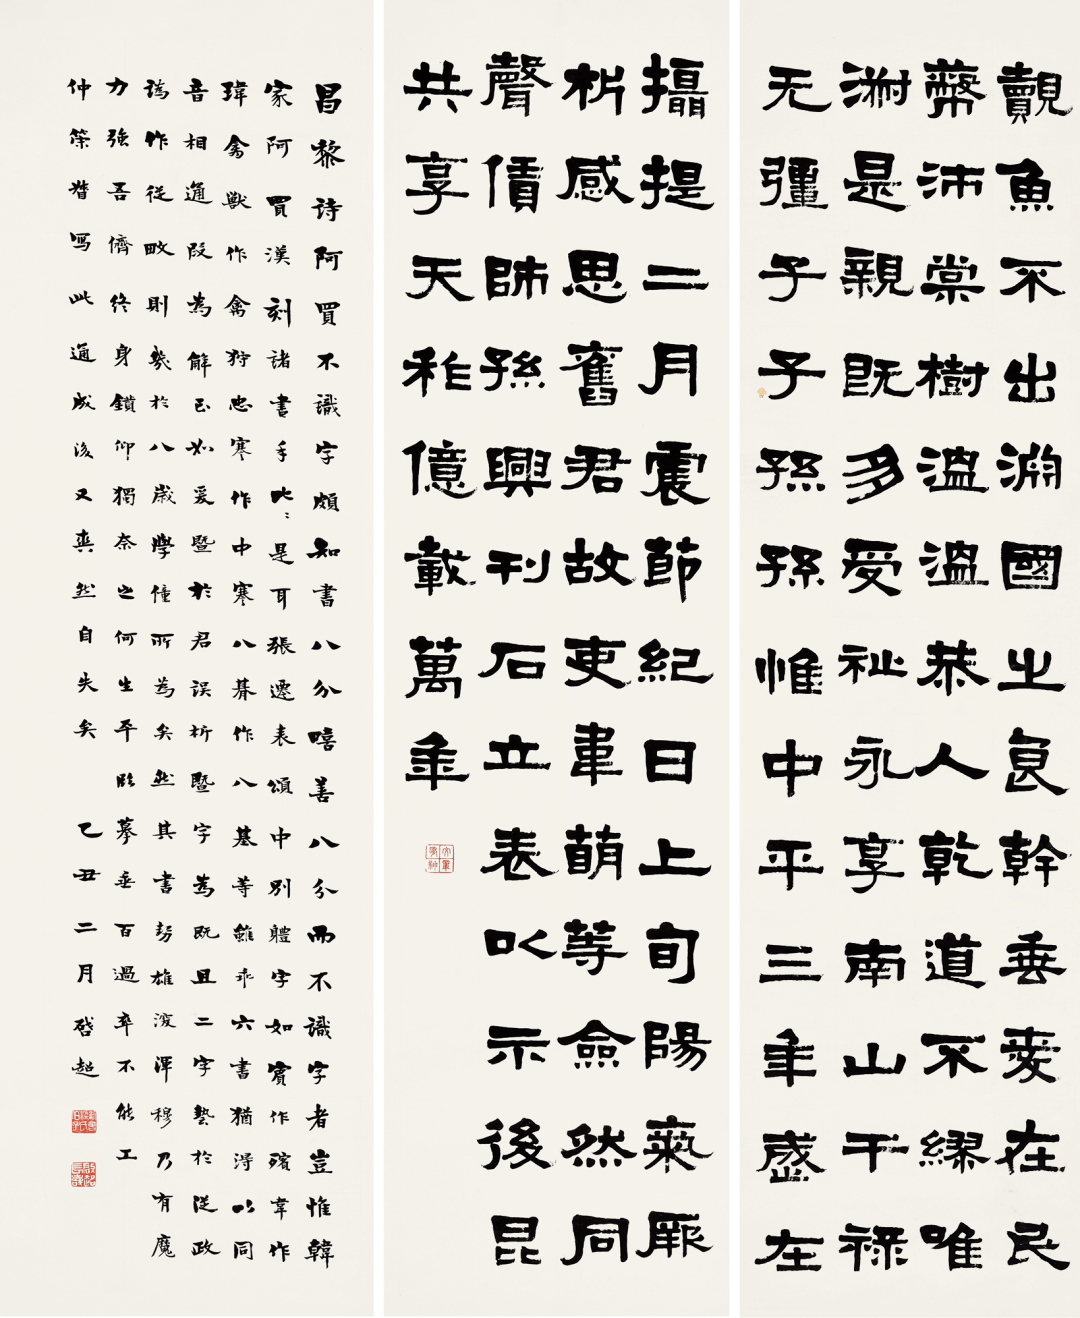 覿魚不出淵國之良幹垂愛在民
蔽沛棠樹溫溫恭人乾道不繆唯
淑是親既多受祉永享南山干祿
无疆子子孫孫惟中平三年歲在
攝提二月震節紀日上旬陽氣厥
析感思舊君故吏韋萌等僉然同
聲賃師孫興刊石立表以示後昆
共享天祚億載萬年
昌黎詩阿買不識字頗知書八分嘻善八分而不識字者豈惟韓
家阿買漢刻諸書手比比是耳張遷表頌中別體字如賓作殯韋作
瑋禽獸作禽狩忠謇作中謇八朞作八基等雖乖六書猶得以同
音相通段為解至如爰暨於君誤析暨字為既且二字埶於從政
譌作從畋則幾於八歲學僮所為矣然其書勢雄浚渾穆乃有魔
力強吾儕終身鑽仰獨奈之何生平臨摹垂百過卒不能工
仲策督寫此通成後又爽然自失矣 乙丑二月啓超